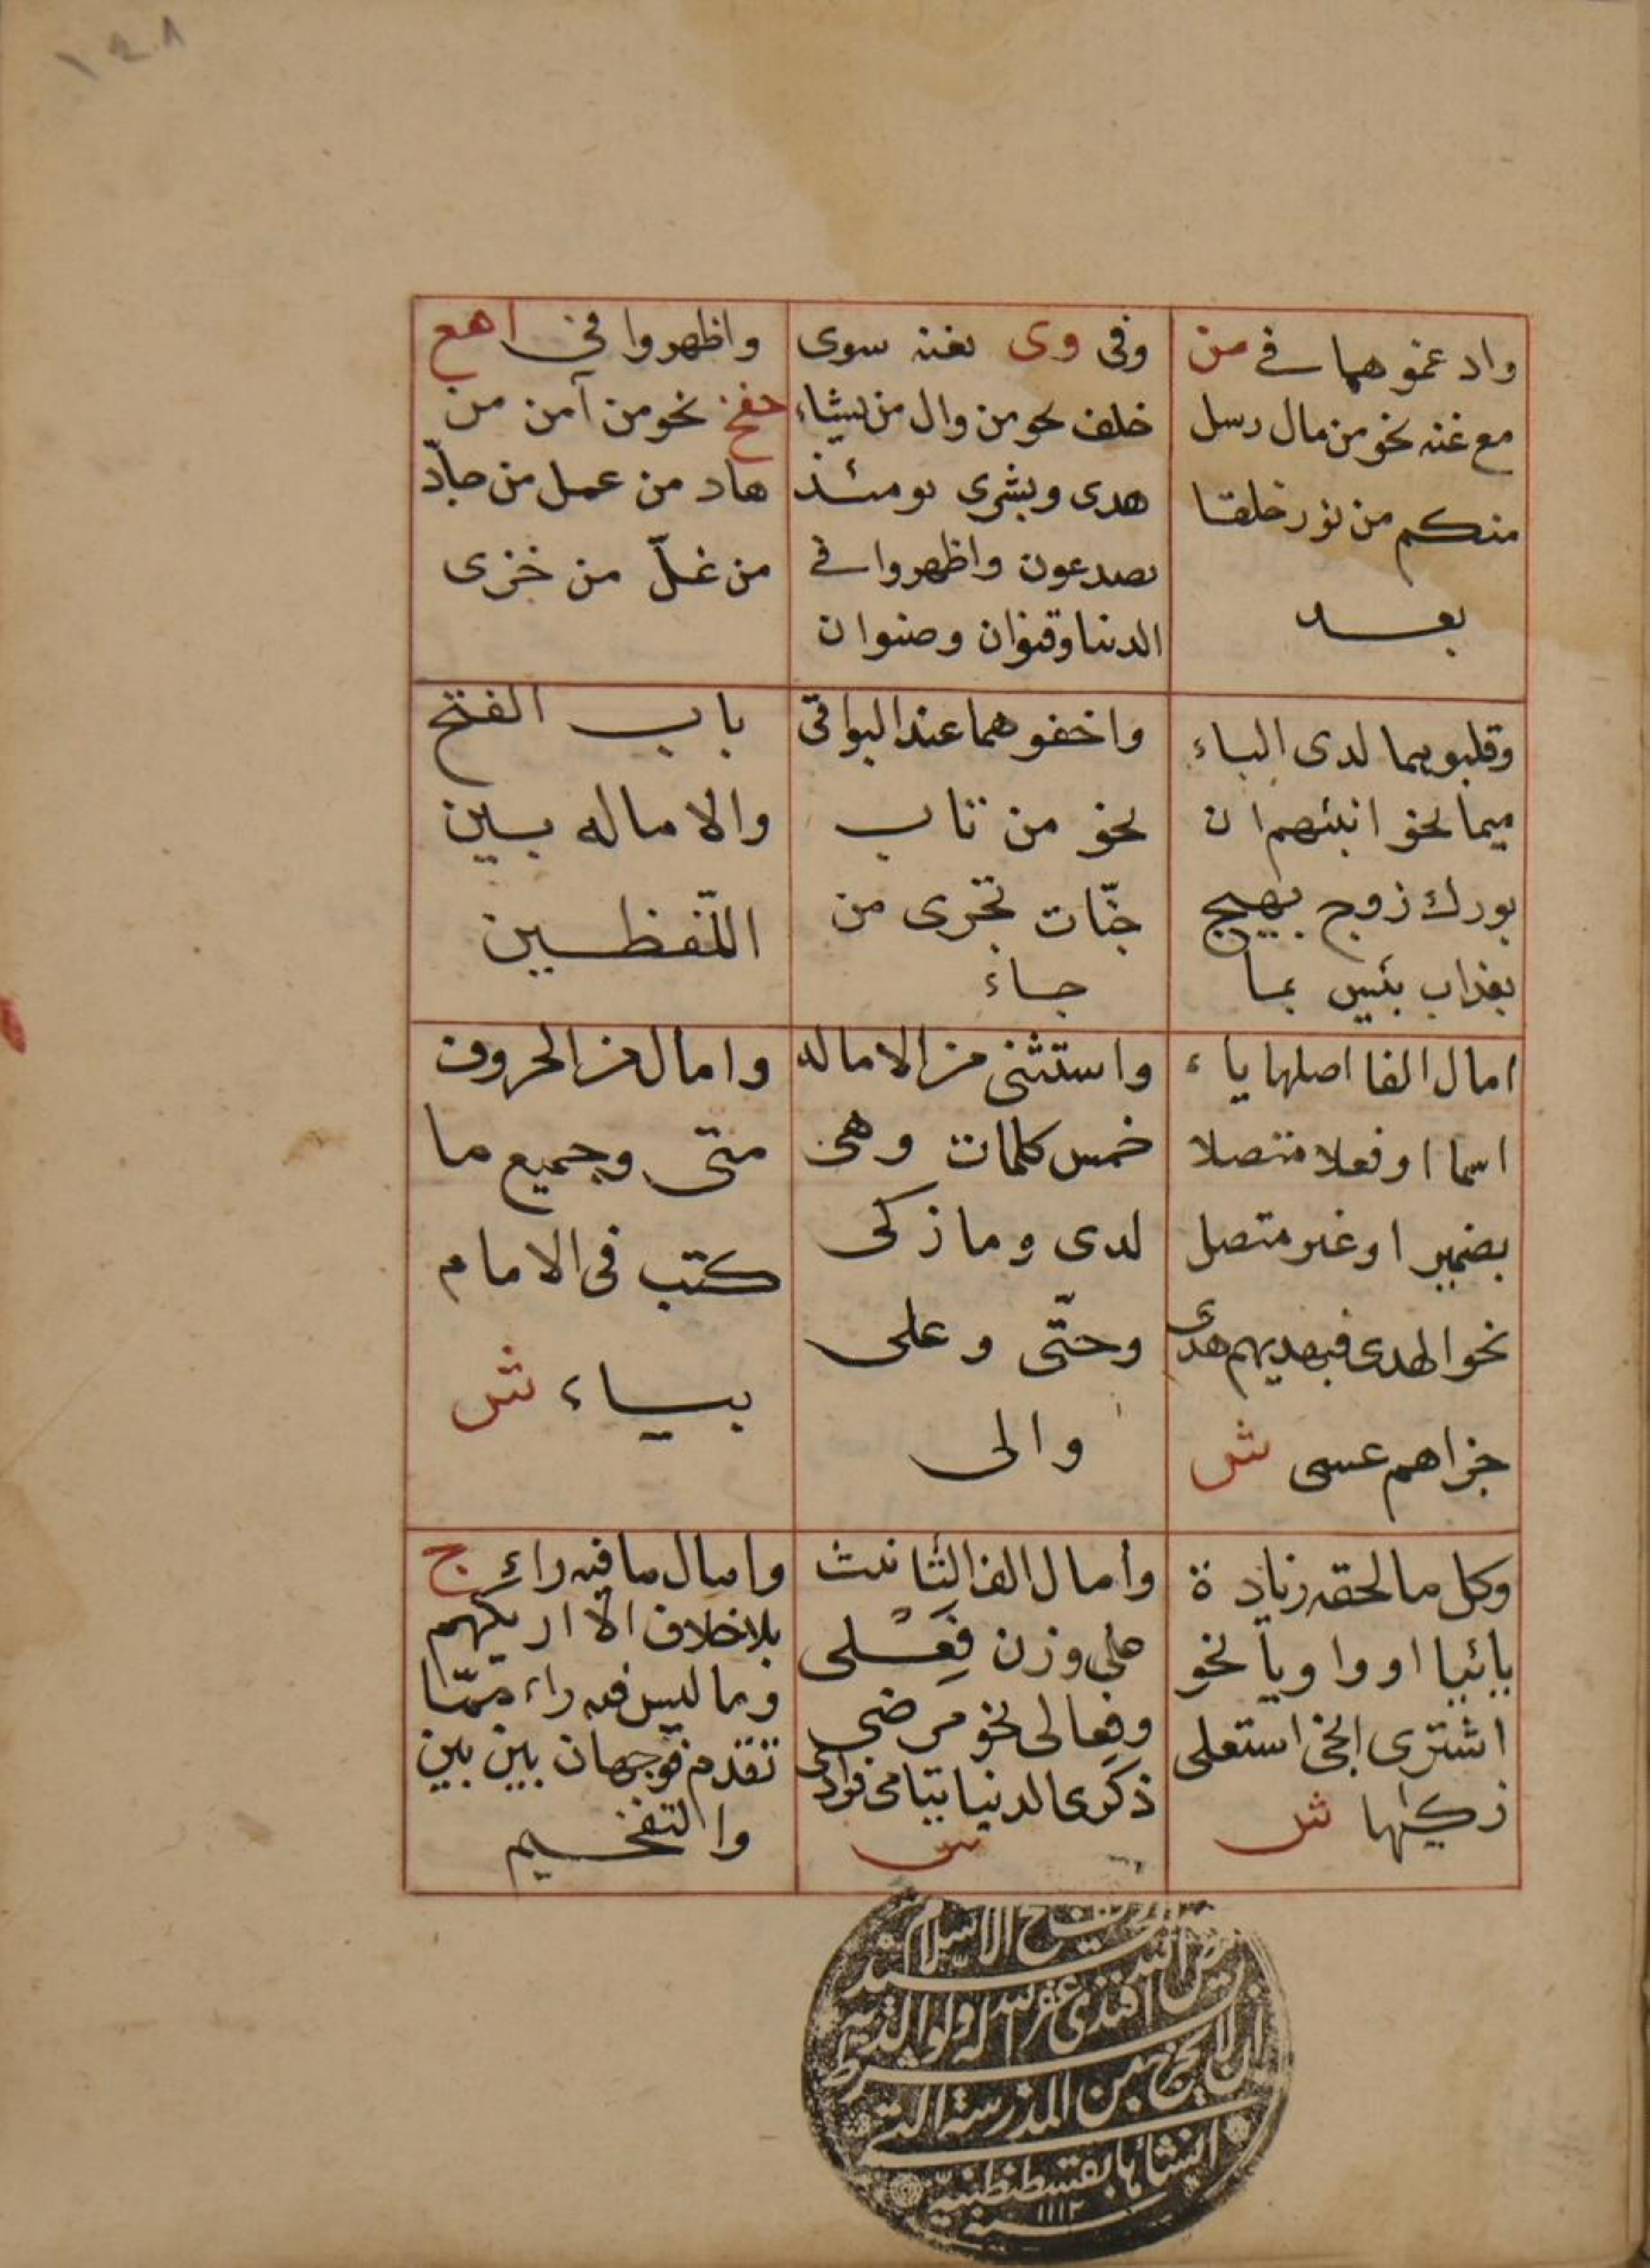 ١٢٨
وادغموهما في من
مع غنه نحو من مال رسل
منكم من نور خلقا
بعد
وفى وى بغنه سوى
خلف نحو من وال من يشاء
هدى وبشرى يومئذ
يصدعون واظهروا في
الدنيا وقنوان وصنوان
واظهروا في اهع
حغخ نحو من آمن من
هاد من عمل من حادّ
من غلّ من خزى
وقلبوهما لدى الباء
ميما نحو انبئهم ان
بورك زوج بهيج
بعذاب بئيس بما
واخفوهما عند البواقى
نحو من تاب
جنّات تجرى من
جاء
باب الفتح
والاماله بين
اللّفظين
امال الفا اصلها ياء
اسما او فعلا متصلا
بضمير او غير متصل
نحو الهدى فبهديهم هدى
جزاهم عسى ش
واستثنى من الاماله
خمس كلمات وهى
لدى وما زكى
وحتّى وعلى
والى
وامال من الحروف
متى وجميع ما
كتب فى الامام
بياء ش
وكل ما لحقه زيادة
يائيا او واويا نحو
اشترى انجى استعلى
زكيها ش
وأمال الف التأنيث
على وزن فعلى
وفعالى نحو مرضى
ذكرى الدنيا يتامى فرادى
ش
وامال ما فيه راء ج
بلا خلاف الّا اريكهم
وما ليس فيه راء ممّا
تقدم فوجهان بين بين
والتفخيم
الاسلام
السيد
افندى غفر الله له ولوالديه
بشرط
ان لا يخرج من المدرسة التى
انشأها بقسطنطنيّة
سنه ١١١٢